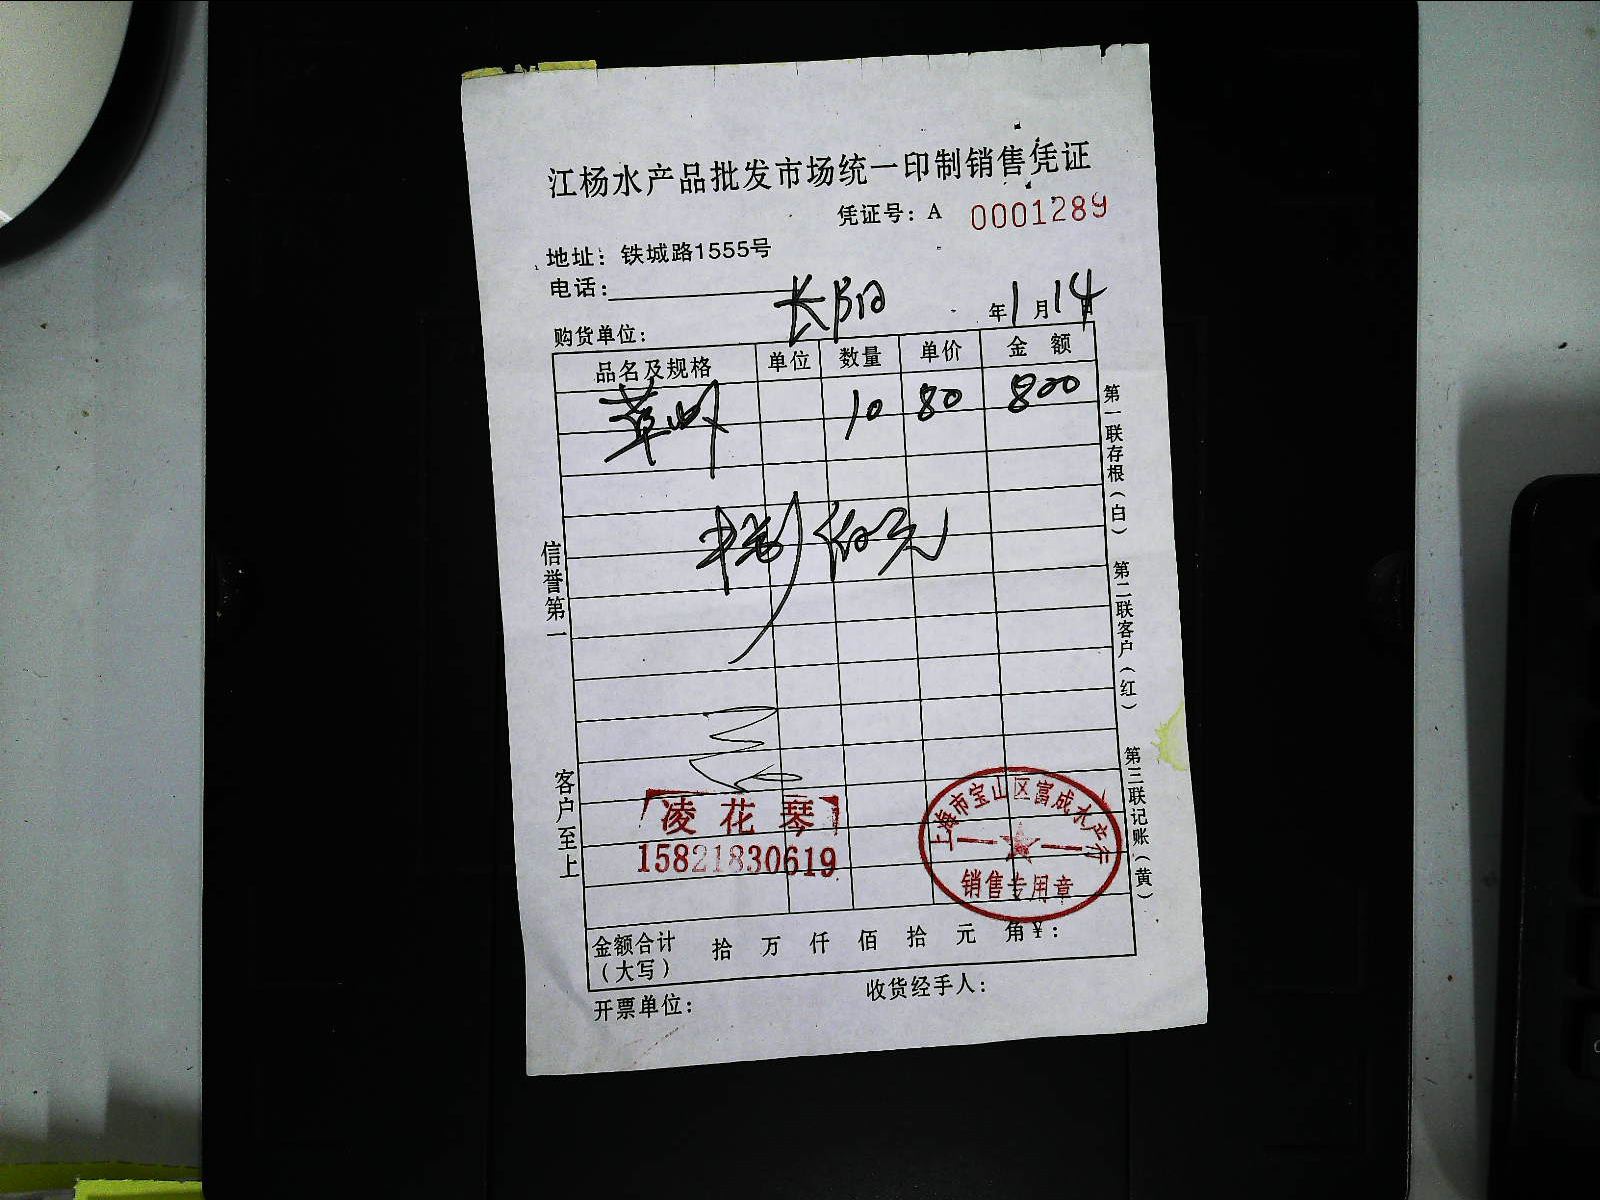 江杨水产品批发市场统一印制销售凭证
凭证号：A 0001289
地址：铁城路1555号
电话：
购货单位： 长阳 年1月14日
品名及规格 单位 数量 单价 金额
草虾 10 80 800
捌佰元
信誉第一
客户至上
第一联存根（白）
第二联客户（红）
第三联记账（黄）
凌花琴
15821830619
上海市宝山区富成水产行
销售专用章
金额合计（大写） 拾 万 仟 佰 拾 元 角 ¥：
开票单位： 收货经手人：